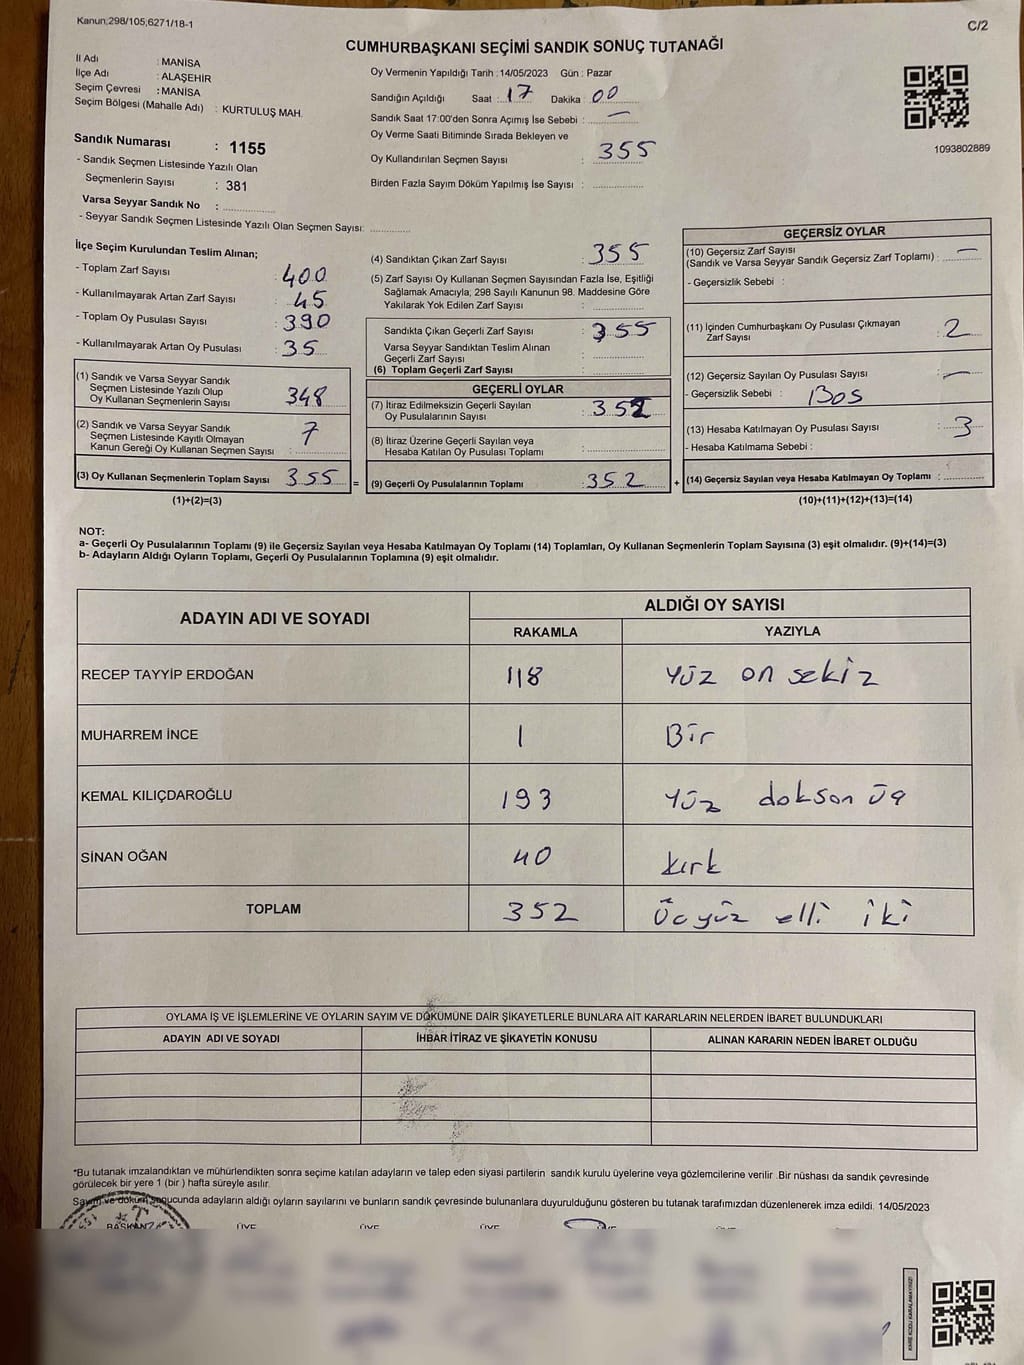 Kanun;298/105;6271/18-1
C/2
CUMHURBAŞKANI SEÇİMİ SANDIK SONUÇ TUTANAĞI
İl Adı : MANİSA
İlçe Adı : ALAŞEHİR
Seçim Çevresi : MANİSA
Seçim Bölgesi (Mahalle Adı) : KURTULUŞ MAH.
Sandık Numarası : 1155
- Sandık Seçmen Listesinde Yazılı Olan
Seçmenlerin Sayısı : 381
Varsa Seyyar Sandık No :
- Seyyar Sandık Seçmen Listesinde Yazılı Olan Seçmen Sayısı:
Oy Vermenin Yapıldığı Tarih : 14/05/2023 Gün : Pazar
Sandığın Açıldığı Saat : 17 Dakika : 00
Sandık Saat 17:00'den Sonra Açımış İse Sebebi : —
Oy Verme Saati Bitiminde Sırada Bekleyen ve
Oy Kullandırılan Seçmen Sayısı : 355
Birden Fazla Sayım Döküm Yapılmış İse Sayısı :
1093802889
İlçe Seçim Kurulundan Teslim Alınan;
- Toplam Zarf Sayısı : 400
- Kullanılmayarak Artan Zarf Sayısı : 45
- Toplam Oy Pusulası Sayısı : 390
- Kullanılmayarak Artan Oy Pusulası : 35
(1) Sandık ve Varsa Seyyar Sandık
Seçmen Listesinde Yazılı Olup
Oy Kullanan Seçmenlerin Sayısı : 348
(2) Sandık ve Varsa Seyyar Sandık
Seçmen Listesinde Kayıtlı Olmayan
Kanun Gereği Oy Kullanan Seçmen Sayısı : 7
(3) Oy Kullanan Seçmenlerin Toplam Sayısı : 355 =
(1)+(2)=(3)
(4) Sandıktan Çıkan Zarf Sayısı : 355
(5) Zarf Sayısı Oy Kullanan Seçmen Sayısından Fazla İse, Eşitliği
Sağlamak Amacıyla, 298 Sayılı Kanunun 98. Maddesine Göre
Yakılarak Yok Edilen Zarf Sayısı :
Sandıkta Çıkan Geçerli Zarf Sayısı : 355
Varsa Seyyar Sandıktan Teslim Alınan
Geçerli Zarf Sayısı :
(6) Toplam Geçerli Zarf Sayısı :
GEÇERLİ OYLAR
(7) İtiraz Edilmeksizin Geçerli Sayılan
Oy Pusulalarının Sayısı : 352
(8) İtiraz Üzerine Geçerli Sayılan veya
Hesaba Katılan Oy Pusulası Toplamı :
(9) Geçerli Oy Pusulalarının Toplamı : 352 +
GEÇERSİZ OYLAR
(10) Geçersiz Zarf Sayısı
(Sandık ve Varsa Seyyar Sandık Geçersiz Zarf Toplamı) : —
- Geçersizlik Sebebi :
(11) İçinden Cumhurbaşkanı Oy Pusulası Çıkmayan
Zarf Sayısı : 2
(12) Geçersiz Sayılan Oy Pusulası Sayısı : —
- Geçersizlik Sebebi : Bos
(13) Hesaba Katılmayan Oy Pusulası Sayısı : 3
- Hesaba Katılmama Sebebi :
(14) Geçersiz Sayılan veya Hesaba Katılmayan Oy Toplamı :
(10)+(11)+(12)+(13)=(14)
NOT:
a- Geçerli Oy Pusulalarının Toplamı (9) ile Geçersiz Sayılan veya Hesaba Katılmayan Oy Toplamı (14) Toplamları, Oy Kullanan Seçmenlerin Toplam Sayısına (3) eşit olmalıdır. (9)+(14)=(3)
b- Adayların Aldığı Oyların Toplamı, Geçerli Oy Pusulalarının Toplamına (9) eşit olmalıdır.
ADAYIN ADI VE SOYADI
ALDIĞI OY SAYISI
RAKAMLA YAZIYLA
RECEP TAYYİP ERDOĞAN 118 Yüz on sekiz
MUHARREM İNCE 1 Bir
KEMAL KILIÇDAROĞLU 193 Yüz dokson üç
SİNAN OĞAN 40 kırk
TOPLAM 352 Üçyüz elli iki
OYLAMA İŞ VE İŞLEMLERİNE VE OYLARIN SAYIM VE DÖKÜMÜNE DAİR ŞİKAYETLERLE BUNLARA AİT KARARLARIN NELERDEN İBARET BULUNDUKLARI
ADAYIN ADI VE SOYADI İHBAR İTİRAZ VE ŞİKAYETİN KONUSU ALINAN KARARIN NEDEN İBARET OLDUĞU
*Bu tutanak imzalandıktan ve mühürlendikten sonra seçime katılan adayların ve talep eden siyasi partilerin sandık kurulu üyelerine veya gözlemcilerine verilir. Bir nüshası da sandık çevresinde
görülecek bir yere 1 (bir ) hafta süreyle asılır.
Sayım ve döküm sonucunda adayların aldığı oyların sayılarını ve bunların sandık çevresinde bulunanlara duyurulduğunu gösteren bu tutanak tarafımızdan düzenlenerek imza edildi. 14/05/2023
BAŞKAN ÜYE ÜYE ÜYE